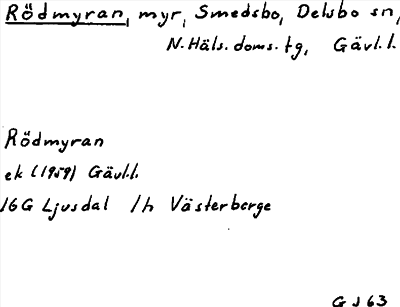 Rödmyran, myr, Smedsbo, Delsbo sn,
N. Häls. doms. tg, Gävl. l.
Rödmyran
ek (1959) Gävl.l.
16G Ljusdal 1h Västerberge
GJ63